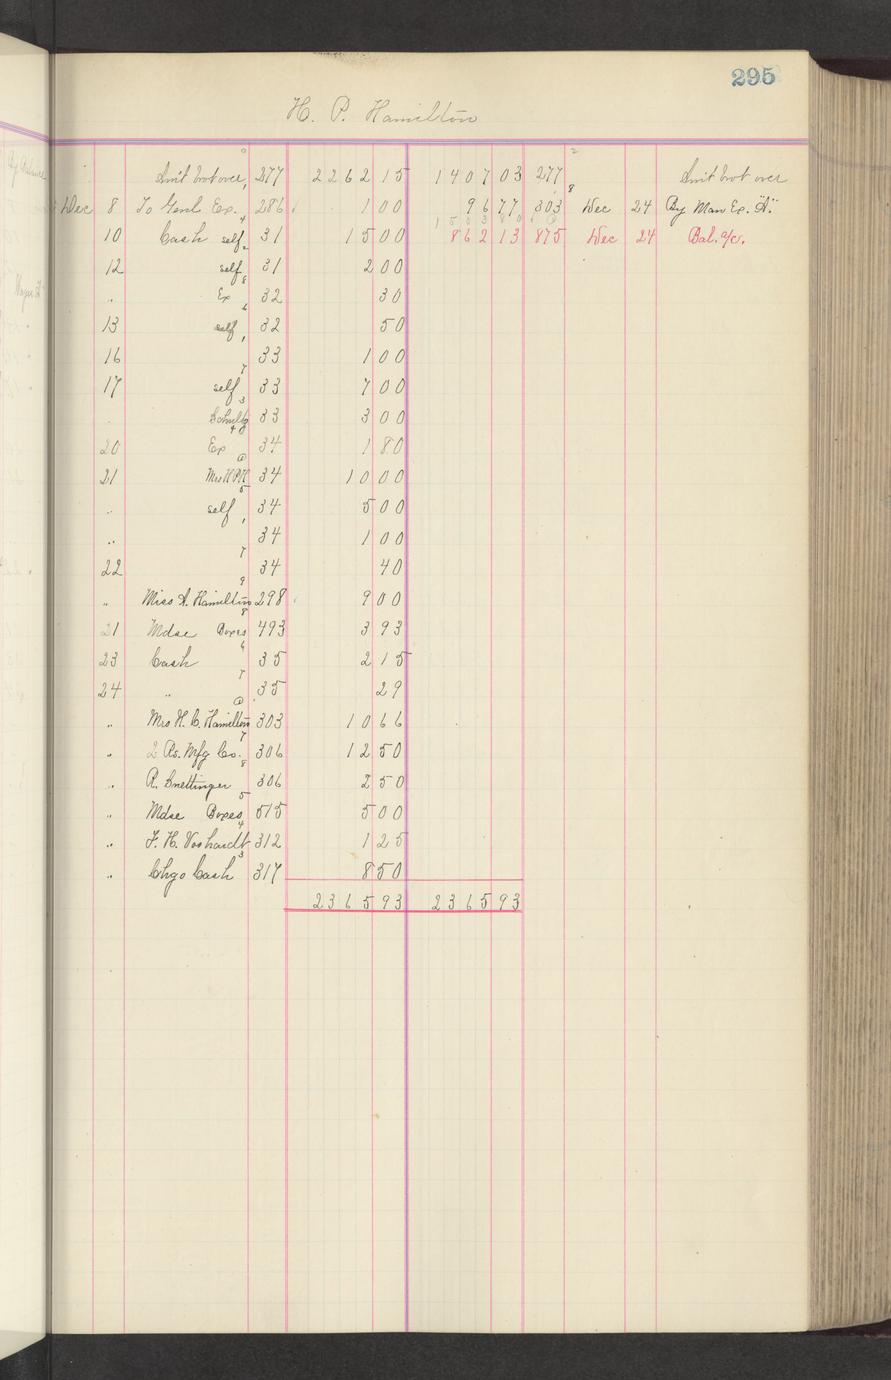 295
H. P. Hamilton
Am't brot over, 277 2262 15 1407 03 277 Am't brot over
Dec 8 To Genl Ex. 286 1 00 96 77 303 Dec 24 By Man Ex. "A"
10 Cash self 31 15 00 862 13 875 Dec 24 Bal. a/c.
12 self 31 2 00
" Ex 32 30
13 self 32 50
16 33 1 00
17 self 33 7 00
33 3 00
20 Ex 34 1 80
21 Mrs H P H 34 10 00
" self 34 5 00
" 34 1 00
22 34 40
" Miss A. Hamilton 298 9 00
21 Mdse Boxes 493 3 93
23 Cash 35 2 15
24 " 35 29
" Mrs H. C. Hamilton 303 10 66
" 2 Rs. Mfg Co. 306 12 50
" R. 306 2 50
" Mdse Boxes 515 5 00
" F. H. Voshardt 312 1 25
" Chgo Cash 317 8 50
2365 93 2365 93